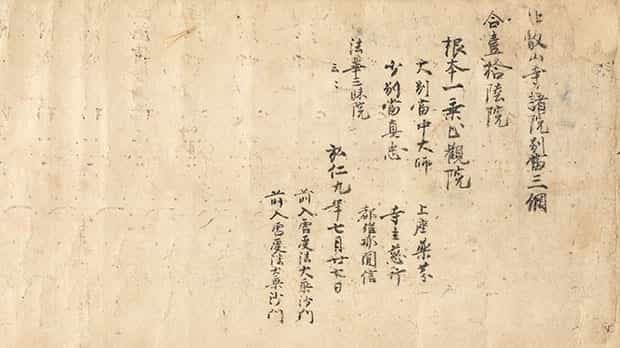 比叡山寺諸院別當三綱
合壹拾陸院
根本一乗止觀院
大別當中大師
上座藥芬
少別當真忠
寺主慈行
都維那圓信
法華三昧院
弘仁九年七月廿七日
前入唐受法大乗沙門
前入唐受法大乗沙門